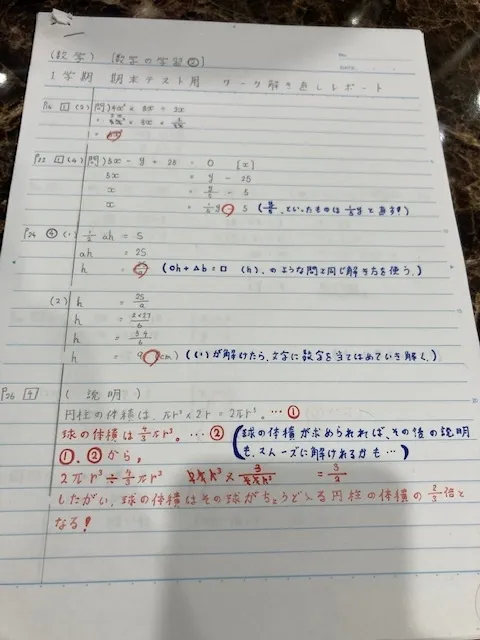 (数学) [数学の学習②]
No.
DATE
1学期 期末テスト用 ワーク解き直しレポート
P16 1 (2) 問)4x² × 8x ÷ 2x
P22 1 (4) 問)5x - y + 25 = 0 [x]
5x = y - 25
x = y/5 - 5
x = 1/5 y - 5 (y/5、といったものは1/5yと直す?)
P24 ④ (1) 1/2 ah = S
ah = 2S
h = 2S/a (○h+△b=□ (h)、のような問と同じ解き方を使う。)
(2) h = 2S/a
h = 2×27/6
h = 54/6
h = 9(cm) ((1)が解けたら、文字に数字を当てはめていき解く。)
P26 4 (説明)
円柱の体積は、πr² × 2r = 2πr³。…①
球の体積は4/3πr³。…② (球の体積が求められれば、その後の説明
①、②から、 も、スムーズに解けれるかも…)
2πr³ ÷ 4/3πr³ = 3/2
したがい、球の体積はその球がちょうど入る円柱の体積の2/3倍と
なる!